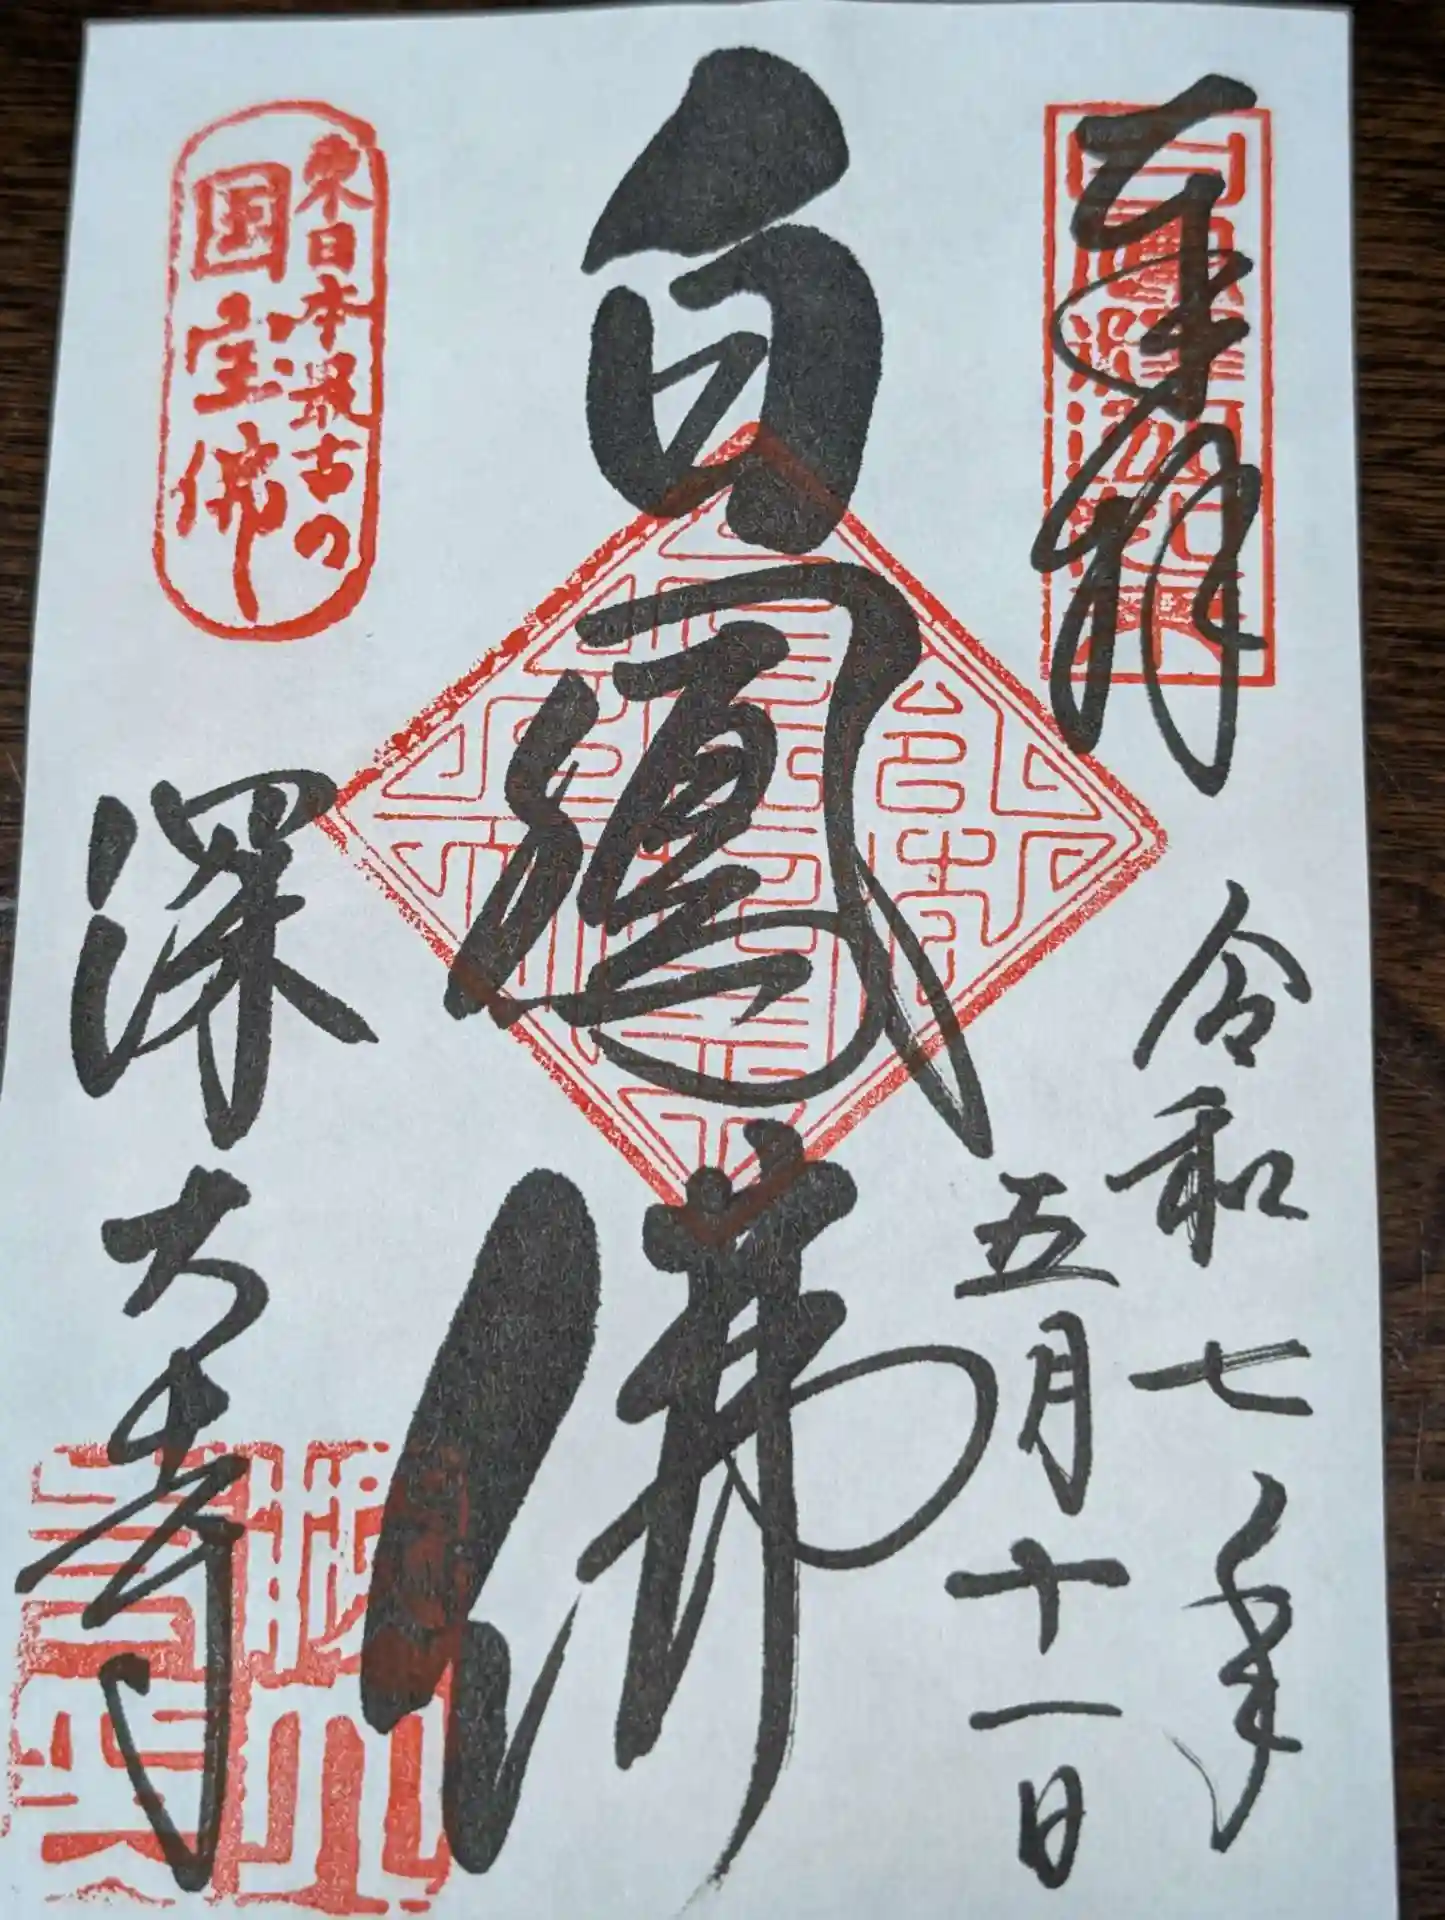 奉拝
令和七年
五月十一日
白鳳佛
東日本最古の
国宝佛
深大寺